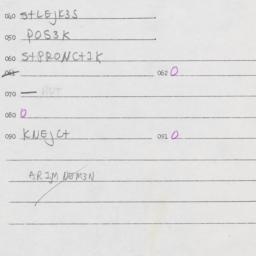 040 S+LEJK3S
050 POS3K
060 S+PRONC+IK
061 062 0
070 —
080 0
090 KNEJC+ 091 0
ARIM NEM3N